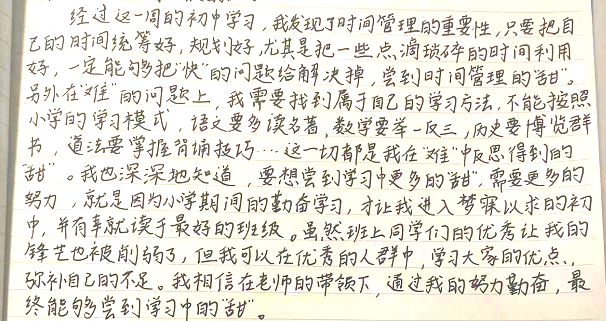 经过这一周的初中学习，我发现了时间管理的重要性，只要把自
己的时间统筹好，规划好，尤其是把一些点滴琐碎的时间利用
好，一定能够多把“快”的问题给解决掉，尝到时间管理的“甜”。
另外在“难”的问题上，我需要找到属于自己的学习方法，不能按照
小学的学习模式，语文要多读名著，数学要举一反三，历史要博览群
书，道法要掌握背诵技巧…这一切都是我在“难”中反思得到的
“甜”。我也深深地知道，要想尝到学习中更多的“甜”，需要更多的
努力，就是因为小学期间的勤奋学习，才让我进入梦寐以求的初
中，并有幸就读于最好的班级。虽然班上同学们的优秀让我的
锋芒也被削弱了，但我可以在优秀的人群中，学习大家的优点，
弥补自己的不足。我相信在老师的带领下，通过我的努力勤奋，最
终能够尝到学习中的“甜”。